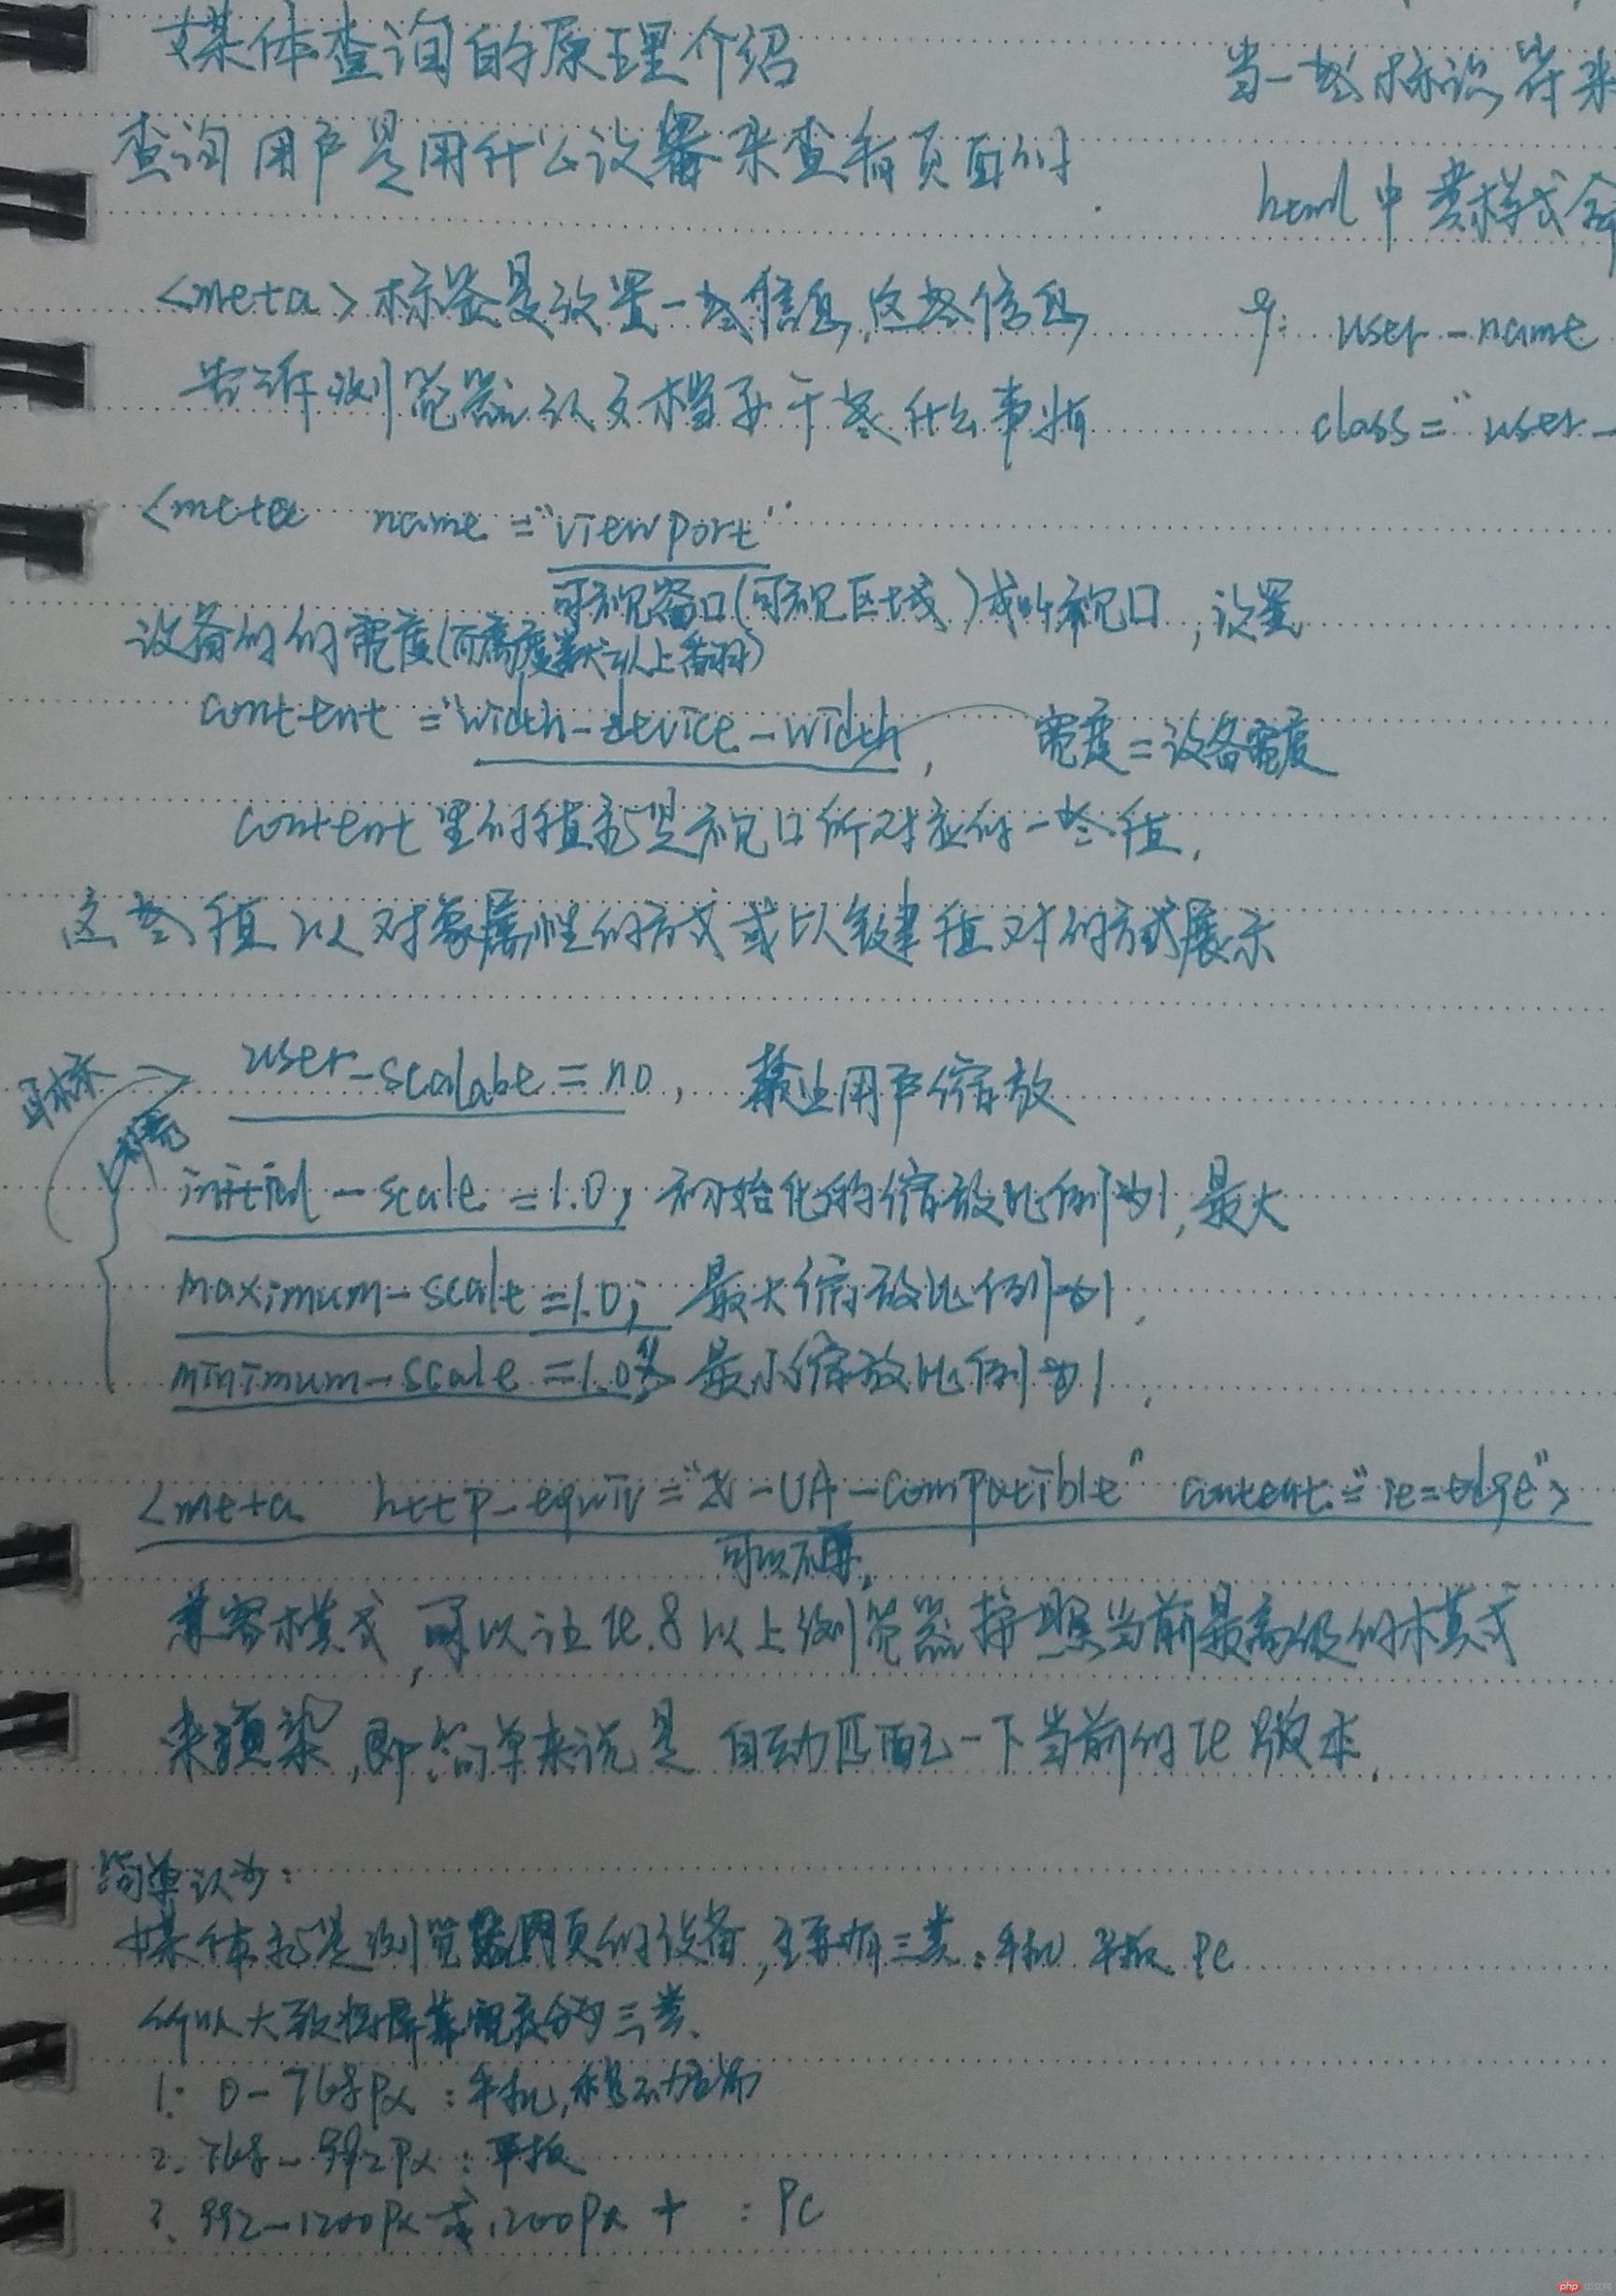 媒体查询的原理介绍
查询用户是用什么设备来查看页面的
<meta>标签是放置一些信息,这些信息
告诉浏览器认文档要干些什么事情
<meta name="viewport"
可视窗口(可视区域)或叫视口,设置
设备的的宽度(而高度 以上翻)
content="width-device-width, 宽度=设备宽度
content里的值就是视口所对应的一些值,
这些值以对象属性的方式或以键值对的方式展示
user-scalabe=no, 禁止用户缩放
补充
initial-scale=1.0; 初始化的缩放比例为1,最大
maximum-scale=1.0; 最大缩放比例为1,
minimum-scale=1.0" 最小缩放比例为1,
<meta http-equiv="X-UA-Compatible" content="ie=edge">
可以不写,
兼容模式,可以让IE8以上浏览器按照当前最高级的模式
来渲染,即简单来说是自动匹配一下当前的IE版本.
简单认为:
媒体就是浏览网页的设备,主要有三类:手机 平板 PC
所以大致将屏幕宽度分为三类.
1. 0-768px:手机,移动
2. 768-992px:平板
3. 992-1200px或1200px+ :PC
当一些标识符来
html中类样式
user-name
class="user-
php 中文网